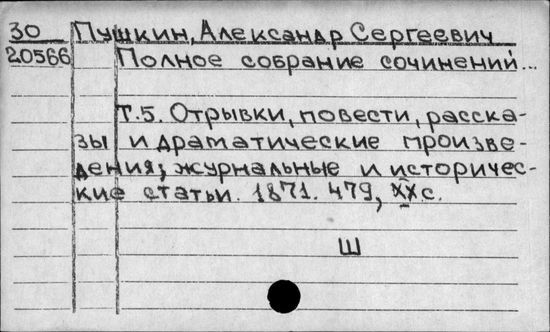 30 Пушкин, Александр Сергеевич
20566 Полное собрание сочинений...
Т.5. Отрывки, повести, расска-
зы и драматические произве-
дения; журнальные и историчес-
кие статьи. 1871. 479, XX с.
Ш